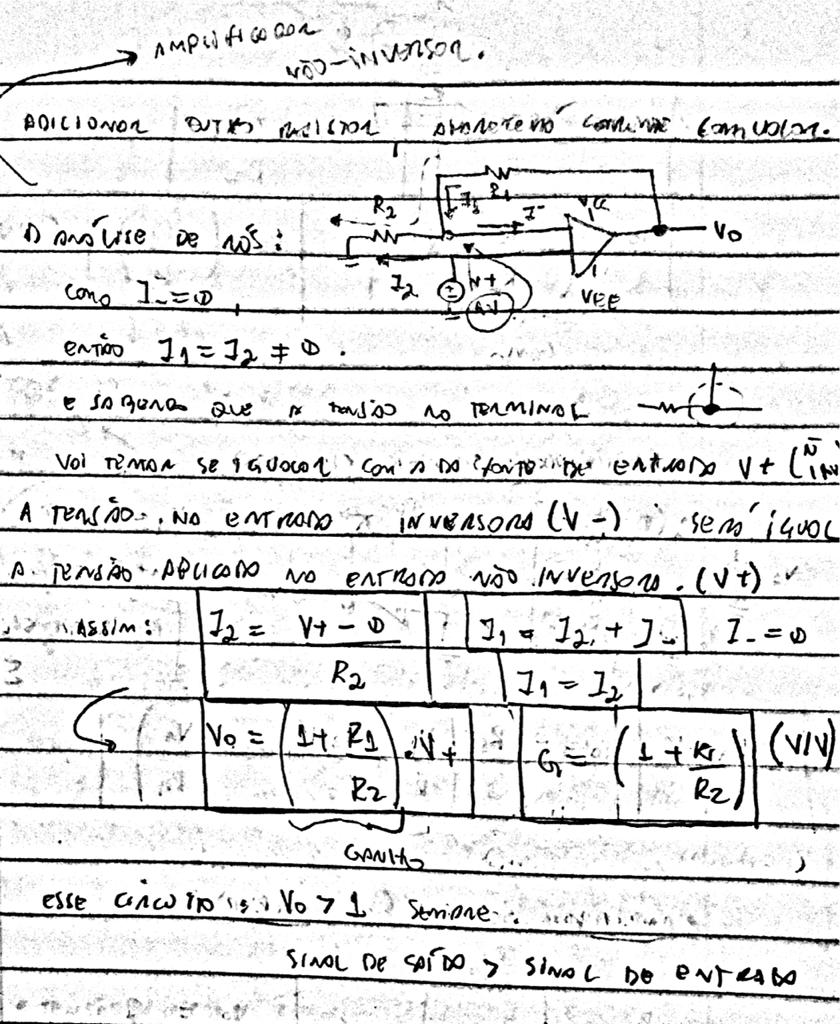 AMPLIFICADOR
NÃO-INVERSOR.
ADICIONAR OUTRO RESISTOR APARECERÁ CORRENTE
R1
I1 I- VCC
R2
Vo
1) ANÁLISE DE NÓS:
I2 V+
VEE
COMO I- = 0
ENTÃO I1 = I2 ≠ 0.
E SABENDO QUE A TENSÃO NO TERMINAL
VAI TENTAR SE IGUALAR COM A DA FONTE DE ENTRADA V+ (
A TENSÃO NA ENTRADA INVERSORA (V-) SERÁ IGUAL
A TENSÃO APLICADA NA ENTRADA NÃO INVERSORA. (V+)
ASSIM: I2 = V+ - 0 / R2 I1 = I2 + I- I- = 0
I1 = I2
Vo = (1 + R1 / R2) . V+ G = (1 + R1 / R2) (V/V)
GANHO
ESSE CIRCUITO Vo > 1 SEMPRE.
SINAL DE SAÍDA > SINAL DE ENTRADA